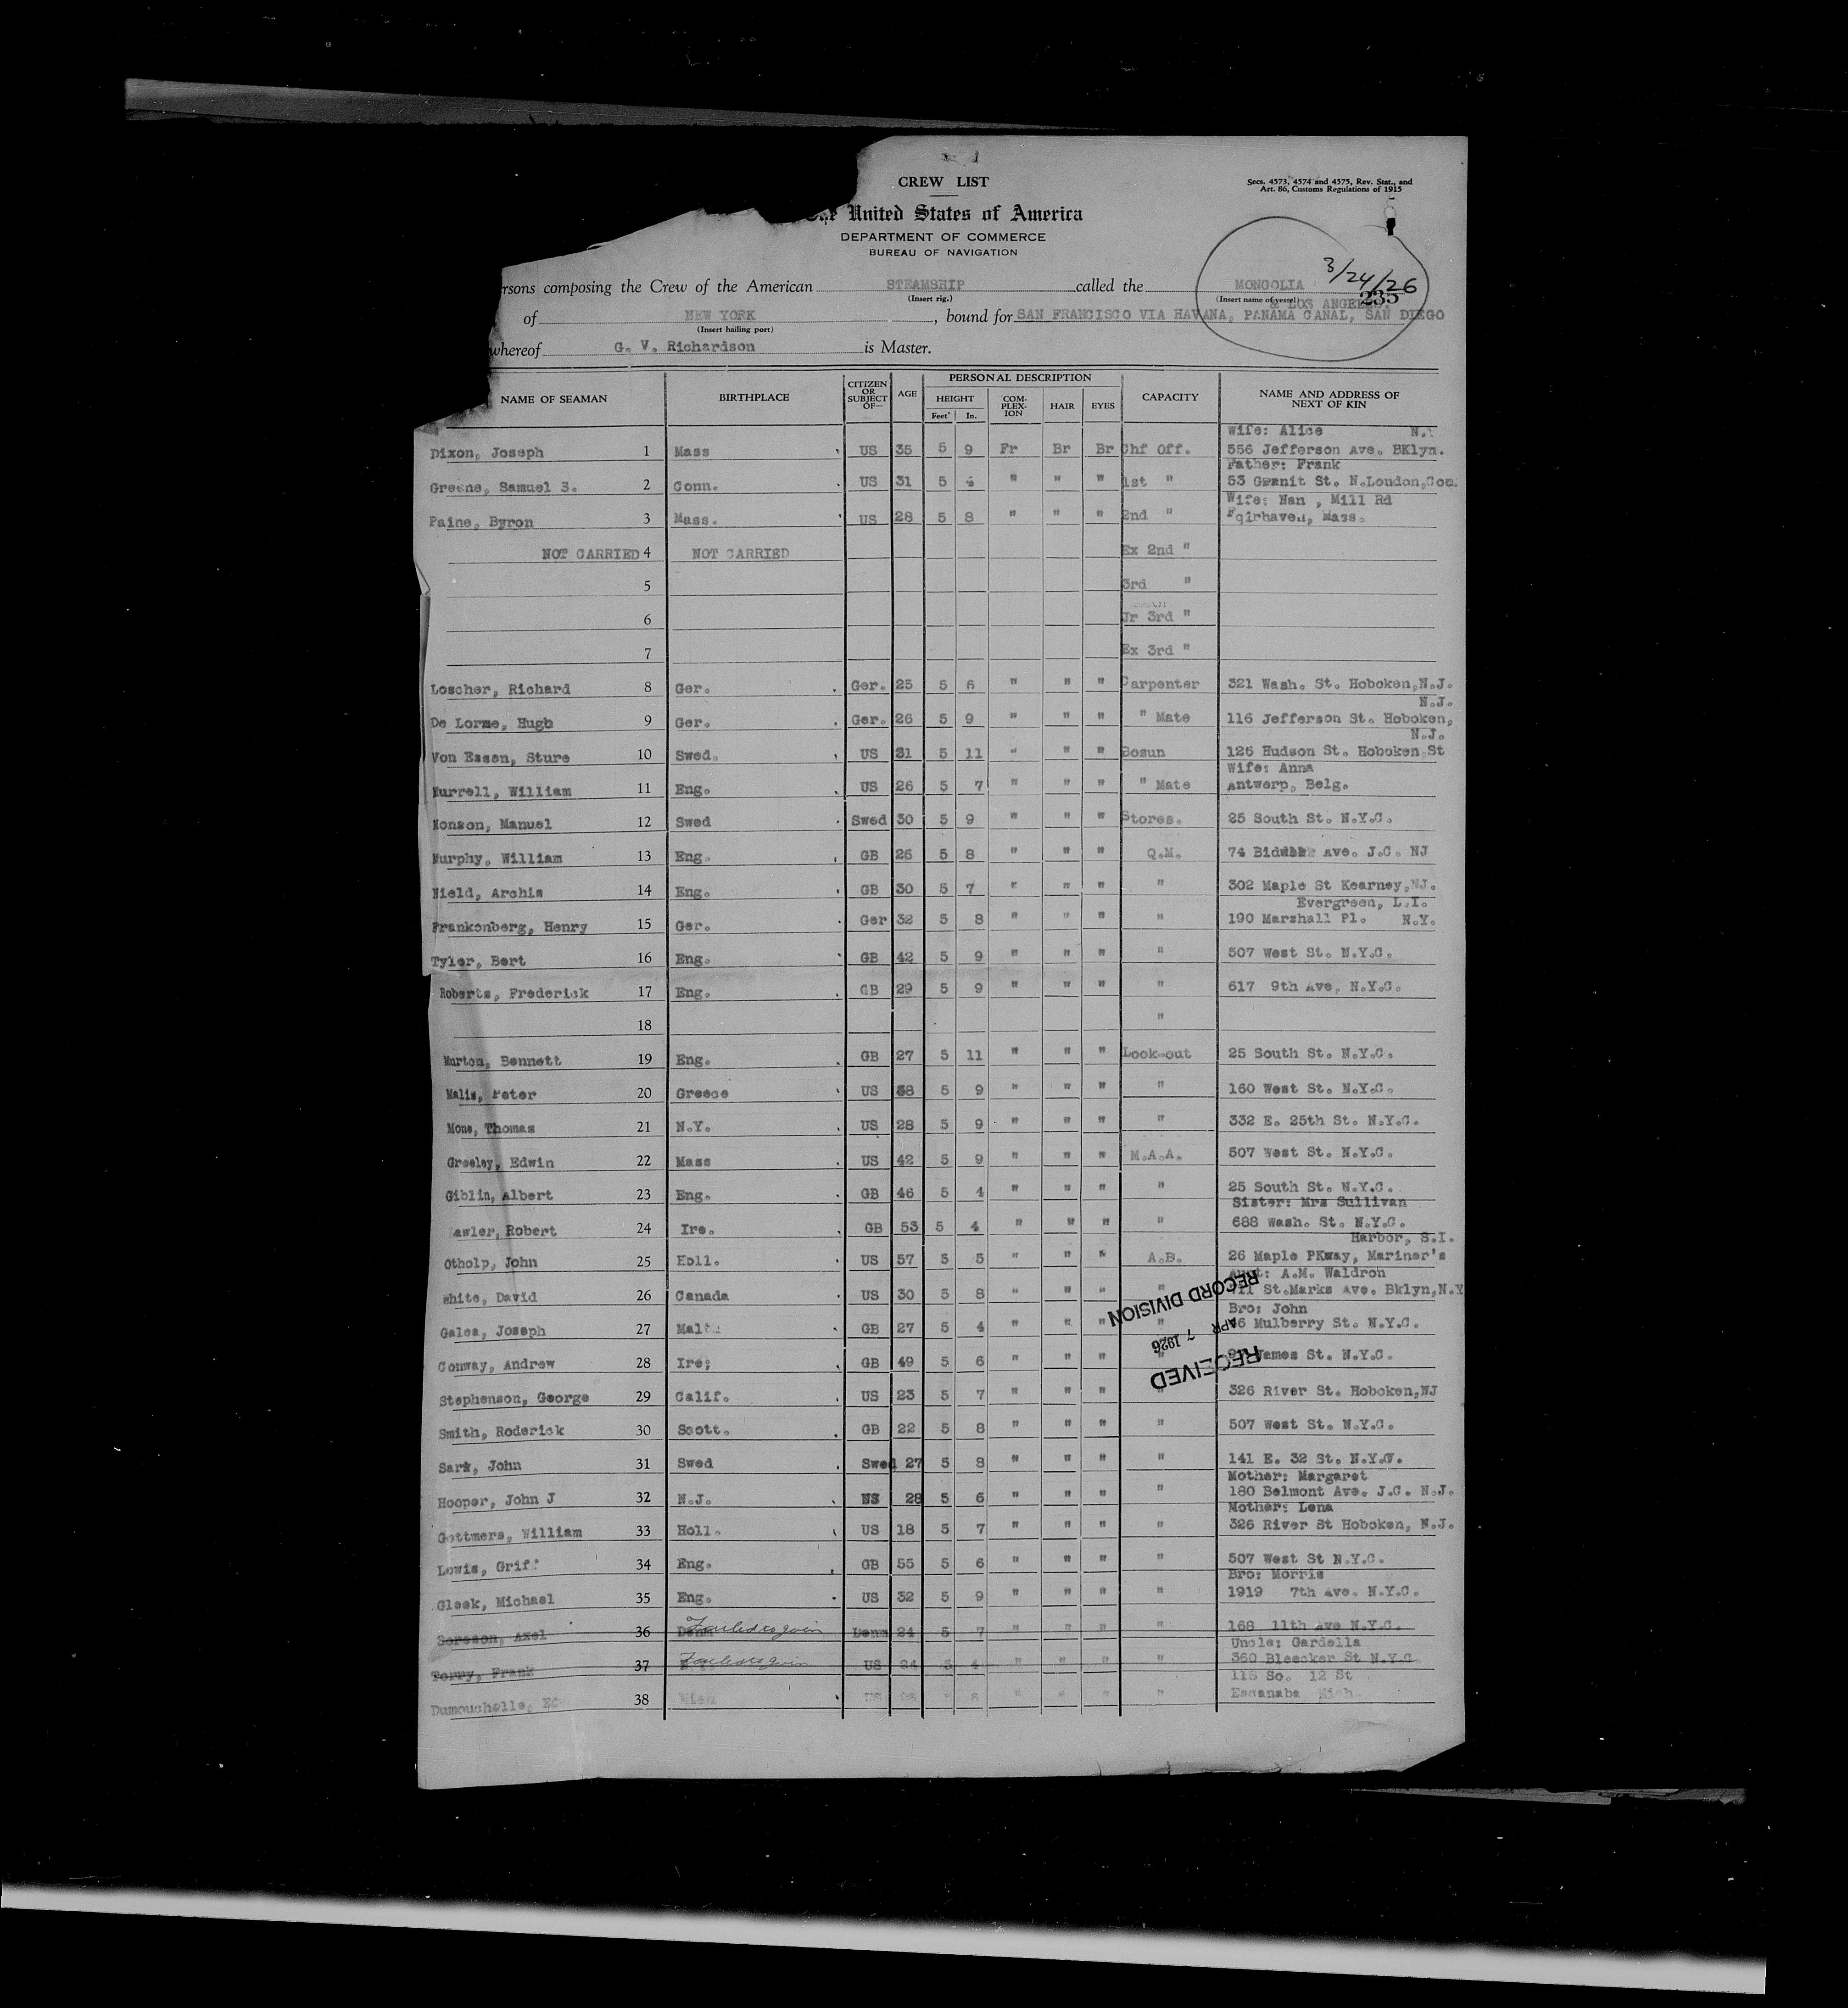 CREW LIST
Secs. 4573, 4574 and 4575, Rev. Stat., and
Art. 86, Customs Regulations of 1915
The United States of America
DEPARTMENT OF COMMERCE
BUREAU OF NAVIGATION
3/24/26
235
rsons composing the Crew of the American STEAMSHIP called the MONGOLIA
(Insert rig.) (Insert name of vessel)
& LOS ANGEL
of NEW YORK, bound for SAN FRANCISCO VIA HAVANA, PANAMA CANAL, SAN DIEGO
(Insert hailing port)
whereof G. V. Richardson is Master.
NAME OF SEAMAN BIRTHPLACE CITIZEN OR SUBJECT OF— AGE PERSONAL DESCRIPTION CAPACITY NAME AND ADDRESS OF NEXT OF KIN
HEIGHT COM-PLEX-ION HAIR EYES
Feet In.
Wife: Alice N.Y
Dixon, Joseph 1 Mass US 35 5 9 Fr Br Br Chf Off. 556 Jefferson Ave. BKlyn.
Father: Frank
Greene, Samuel S. 2 Conn. US 31 5 4 " " " 1st " 53 Granit St. N.London,Con.
Wife: Nan , Mill Rd
Paine, Byron 3 Mass. US 28 5 8 " " " 2nd " Fqirhaven, Mass.
NOT CARRIED 4 NOT CARRIED Ex 2nd "
5 3rd "
6 Jr 3rd "
7 Ex 3rd "
Loscher, Richard 8 Ger. Ger. 25 5 6 " " " Carpenter 321 Wash. St. Hoboken,N.J.
N.J.
De Lorme, Hugh 9 Ger. Ger. 26 5 9 " " " " Mate 116 Jefferson St. Hoboken,
N.J.
Von Essen, Sture 10 Swed. US 31 5 11 " " " Bosun 126 Hudson St. Hoboken,St
Wife: Anna
Murrell, William 11 Eng. US 26 5 7 " " " " Mate Antwerp, Belg.
Monson, Manuel 12 Swed Swed 30 5 9 " " " Stores. 25 South St. N.Y.C.
Murphy, William 13 Eng. GB 26 5 8 " " " Q.M. 74 Ave. J.C. NJ
Nield, Archie 14 Eng. GB 30 5 7 " " " " 302 Maple St Kearney,NJ.
Evergreen, L.I.
Frankenberg, Henry 15 Ger. Ger 32 5 8 " " " " 190 Marshall Pl. N.Y.
Tyler, Bert 16 Eng. GB 42 5 9 " " " " 507 West St. N.Y.C.
Roberts, Frederick 17 Eng. GB 29 5 9 " " " " 617 9th Ave, N.Y.C.
18 "
Murton, Bennett 19 Eng. GB 27 5 11 " " " Look-out 25 South St. N.Y.C.
Malis, Peter 20 Greece US 38 5 9 " " " " 160 West St. N.Y.C.
Mone, Thomas 21 N.Y. US 28 5 9 " " " " 332 E. 25th St. N.Y.C.
Greeley, Edwin 22 Mass US 42 5 9 " " " M.A.A. 507 West St. N.Y.C.
Giblin, Albert 23 Eng. GB 46 5 4 " " " " 25 South St. N.Y.C.
Sister: Mrs Sullivan
awler, Robert 24 Ire. GB 53 5 4 " " " " 688 Wash. St. N.Y.C.
Harbor, S.I.
Otholp, John 25 Holl. US 57 5 5 " " " A.B. 26 Maple PKway, Mariner's
Aunt: A.M. Waldron
White, David 26 Canada US 30 5 8 " " " " St.Marks Ave. Bklyn,N.Y
Bro: John
Galea, Joseph 27 Malta GB 27 5 4 " " " 46 Mulberry St. N.Y.C.
Conway, Andrew 28 Ire; GB 49 5 6 " " " " James St. N.Y.C.
RECEIVED
APR 7 1926
RECORD DIVISION
Stephenson, George 29 Calif. US 23 5 7 " " " " 326 River St. Hoboken,NJ
Smith, Roderick 30 Scott. GB 22 5 8 " " " " 507 West St. N.Y.C.
Sark, John 31 Swed Swed 27 5 8 " " " " 141 E. 32 St. N.Y.C.
Mother: Margaret
Hooper, John J 32 N.J. US 28 5 6 " " " " 180 Belmont Ave. J.C. N.J.
Mother: Lena
Gottmers, William 33 Holl. US 18 5 7 " " " " 326 River St Hoboken, N.J.
Lewis, Griff 34 Eng. GB 55 5 6 " " " " 507 West St N.Y.C.
Bro: Morris
Gleek, Michael 35 Eng. US 32 5 9 " " " " 1919 7th Ave. N.Y.C.
Soreson, Axel 36 Denm Failed to join Denm 24 5 7 " " " " 168 11th Ave N.Y.C.
Uncle: Gardella
Torry, Frank 37 Failed to join US 24 5 4 " " " " 360 Bleecker St N.Y.C
115 So. 12 St
Dumouchelle, Ed 38 Mich US 5 8 " " " " Escanaba Mich.